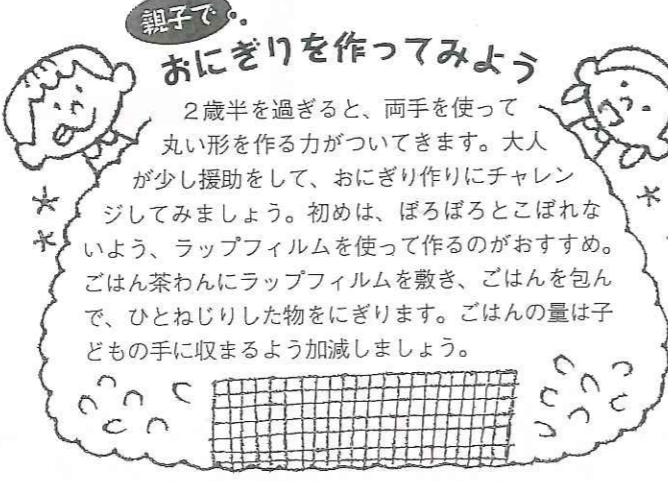 親子で
おにぎりを作ってみよう
2歳半を過ぎると、両手を使って
丸い形を作る力がついてきます。大人
が少し援助をして、おにぎり作りにチャレン
ジしてみましょう。初めは、ぼろぼろとこぼれな
いよう、ラップフィルムを使って作るのがおすすめ。
ごはん茶わんにラップフィルムを敷き、ごはんを包ん
で、ひとねじりした物をにぎります。ごはんの量は子
どもの手に収まるよう加減しましょう。